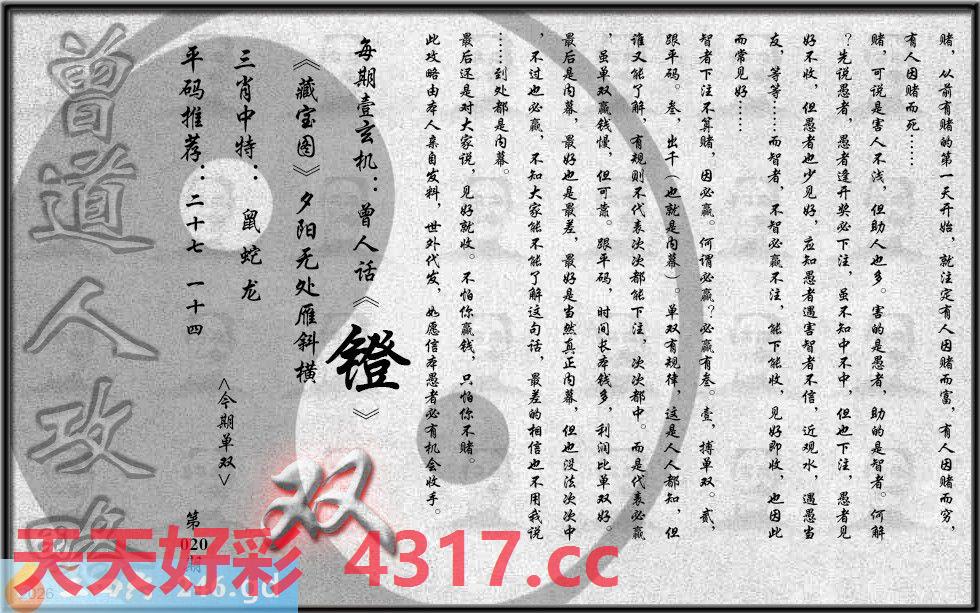 赌，从前有赌的第一天开始，就注定有人因赌而富，有人因赌而穷，
有人因赌而死……
赌，可说是害人不浅，但助人也多。害的是愚者，助的是智者。何解
？先说愚者，愚者逢开奖必下注，虽不知中不中，但也下注，愚者见
好不收，但愚者也少见好，应知愚者遇害智者不信，近观水，遇愚当
友，等等……而智者，不智必赢不注，能下能收，见好即收，也因此
而常见好……
智者下注不算赌，因必赢。何谓必赢？必赢有叁。壹，搏单双。贰，
跟平码。叁，出千（也就是内幕）。单双有规律，这是人人都知，但
谁又能了解，有规则不代表次次都能下注，次次都中。而是代表必赢
，虽单双赢钱慢，但可靠。跟平码，时间长本钱多，利润比单双好。
最后是内幕，最好也是最差，最好是当然真正内幕，但也没法次次中
，不过也必赢，不知大家能不能了解这句话，最差的相信也不用我说
……到处都是内幕。
最后还是对大家说，见好就收。不怕你赢钱，只怕你不赌。
此攻略由本人亲自发料，世外代发，如愿信本愚者必有机会收手。
每期壹玄机：曾人话《镫》
《藏宝图》夕阳无处雁斜横
三肖中特：鼠蛇龙
平码推荐：二十七 一十四
<今期单双>
双
第
020
期
曾道人攻略
天天好彩 4317.cc